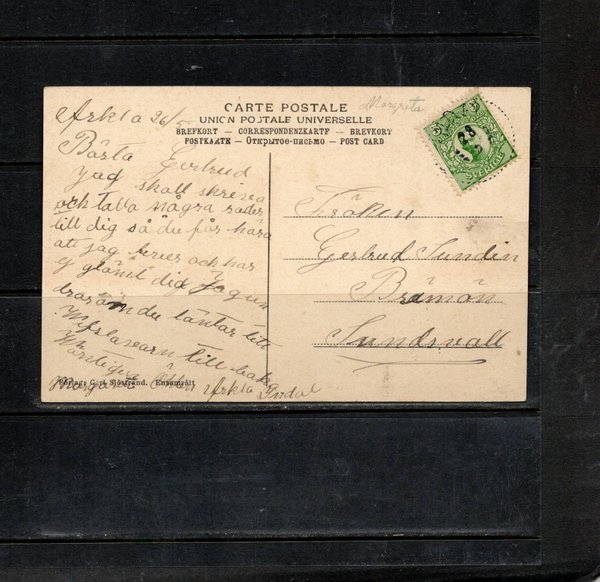 CARTE POSTALE
UNION POSTALE UNIVERSELLE
BREFKORT — CORRESPONDENZKARTE — BREVKORT
POSTKARTE — Открытое-письмо — POST CARD
Margreta
28
SVERIGE
Arklo 26/5
Bästa Gertrud
jag skall skriva
och tala några rader
till dig så du får höra
att jag lever och har
ej glömt dig Jag un
drar om duläntar till
till baka
Vänligen
Margreta
Indal
Förlag: Carl Sjöstrand. Ensamrätt
Fröken
Gertrud Sundin
Brämön
Sundsvall